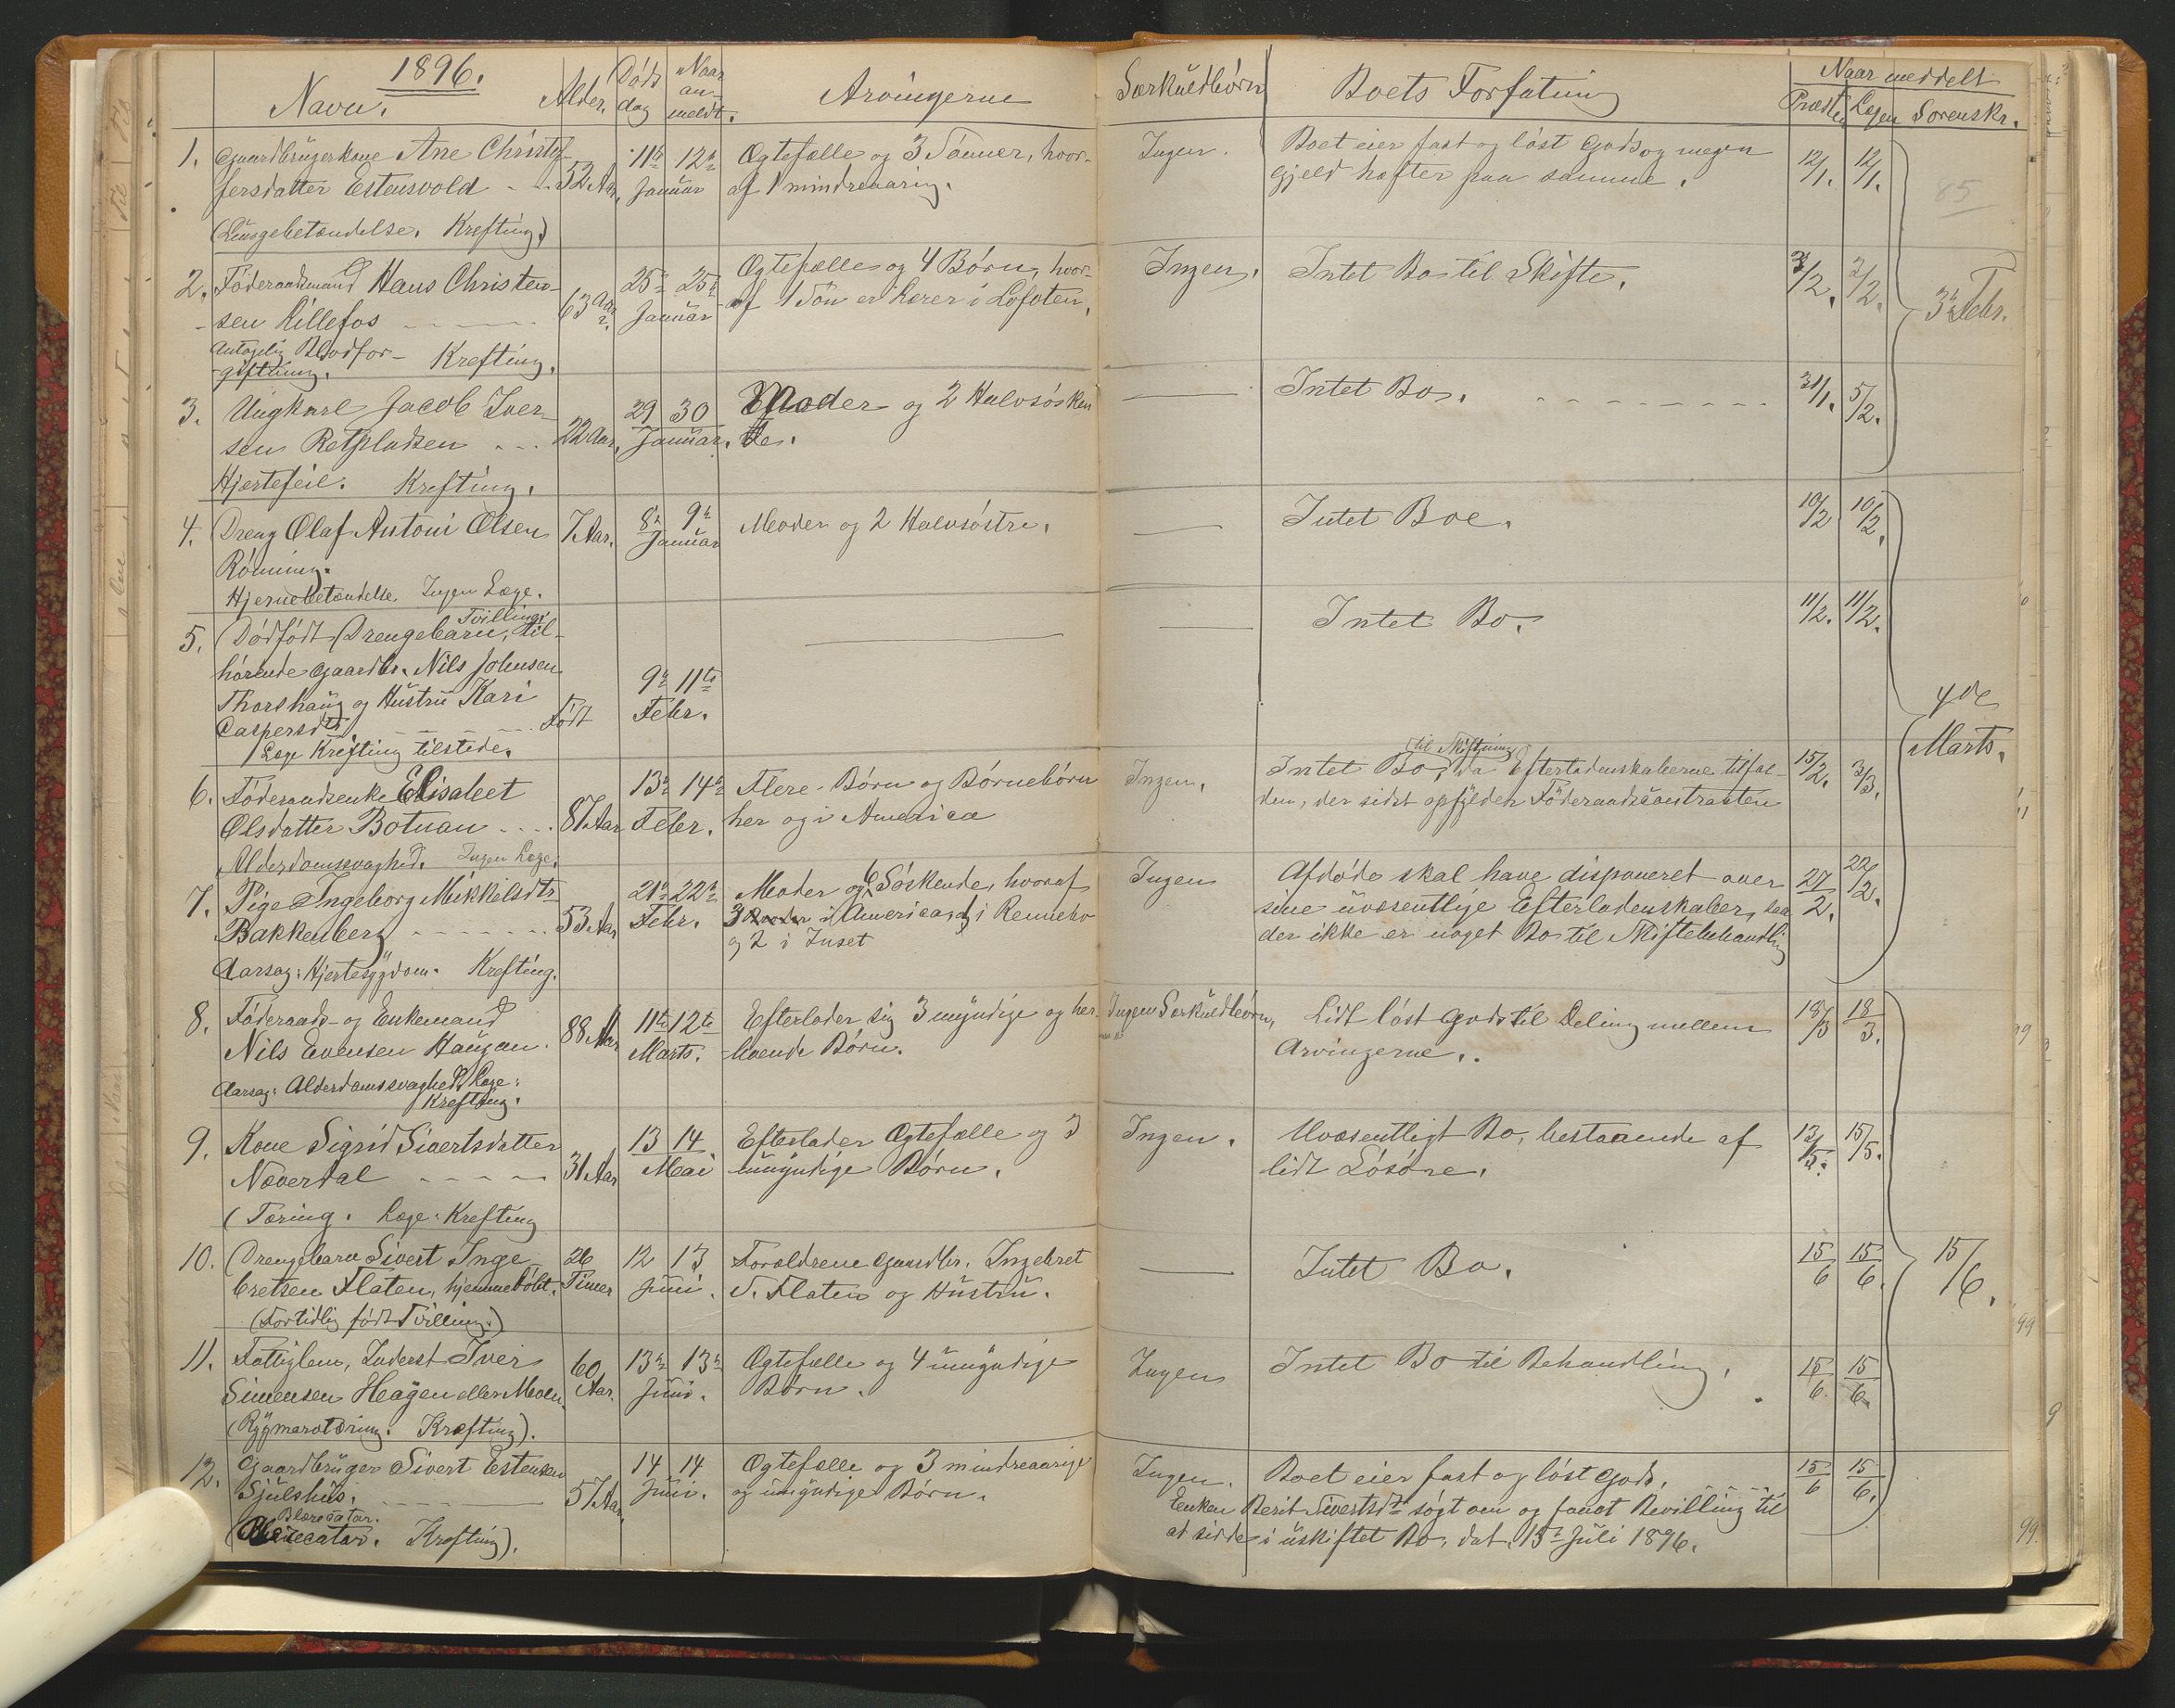 1896.
Navn. Alder. Døds dag Naar anmeldt. Arvingerne Særkuldbørn Boets Forfatning Naar meddelt
Præsten Lægen Sorenskr.
1. Gaardbrugerkone Ane Christof- 11te 12te Ægtefælle og 3 Sønner, hvor- Ingen. Boet eier fast og løst Gods og megen 12/1. 12/1.
fersdatter Estensvold - .. 52 Aar. Januar af 1 mindreaarig. Gjeld hæfter paa samme. 85
(Lungebetændelse. Krefting.)
2. Føderaadsmand Hans Christen- 25de 25de Ægtefælle og 4 Børn, hvor- Ingen. Intet Bo til Skifte. 3/2. 2/2.
sen Lillefos - - - - 63 Aar. Januar af 1 Søn er Lærer i Lofoten. 3die Febr.
Antagelig Blodfor-
giftning. Krefting.
3. Ungkarl Jacob Iver- 29 30 Moder og 2 Halvsøsken- Intet Bo. - - - - - - - - 31/1. 5/2.
sen Retpladsen ... 22 Aar. Januar. de.
Hjertefeil. Krefting.
4. Dreng Olaf Antoni Olsen 7 Aar. 8de 9de Moder og 2 Halvsøstre. Intet Boe. 10/2 10/2.
Rønning. Januar
Hjernebetændelse. Ingen Læge.
Tvilling
5. Dødfødt Drengebarn, til- Intet Bo. 11/2. 11/2.
hørende Gaardbr. Nils Johnsen
Thorshaug og Hustru Kari 9de 11te
Caspersdtr. - - - Født Febr. 4de
Læge Krefting tilstede. Marts.
til Skiftning
6. Føderaadsenke Elisabet 13de 14de Flere Børn og Børnebørn Ingen. Intet Bo, da Efterladenskaberne tilfal- 15/2. 3/3.
Olsdatter Botnan .... 87 Aar Febr. her og i America dem, der sidst opfylder Föderaadscontracten
Alderdomssvaghed. Ingen Læge.
7. Pige Ingeborg Mikkelsdtr 21de 22de Moder og 6 Søskende, hvoraf Ingen Afdøde skal have disponeret over 27/2. 22/2.
Bakkenberg - - - - - 53 Aar Febr. 3 i America, 1 i Rennebo sine uvæsentlige Efterladenskaber, saa
og 2 i Inset der ikke er noget Bo til Skiftebehandling
Aarsag: Hjertesygdom. Krefting.
8. Føderaads- og Enkemand 11te 12te Efterlader sig 3 myndige og her- Ingen Særkuldbørn, Lidt løst Gods til Deling mellem 18/3 18/3.
Nils Evensen Haugan. 88 Aar Marts. boende Børn. Arvingerne.
Aarsag: Alderdomssvaghed. Læge:
Krefting.
9. Kone Sigrid Sivertsdatter 13 14 Efterlader Ægtefælle og 3 Ingen. Uvæsentligt Bo, bestaaende af 13/5. 15/5.
Næverdal - - - - 31 Aar Mai umyndige Børn. lidt Løsøre.
(Tæring. Læge: Krefting
10. Drengebarn Sivert Inge- 26 12 13 Forældrene Gaardbr. Ingebret Intet Bo. 15/6 15/6. 15/6.
bretsen Flaten, hjemmedøbt. Timer Juni. S. Flaten og Hustru.
(Fortidlig født Tvilling.)
11. Fattiglem, Inderst Iver 60 13de 13de Ægtefælle og 4 umyndige Ingen Intet Bo til Behandling. 15/6. 15/6.
Simensen Heagen eller Moen. Aar. Juni. Børn.
(Rygmarvstæring. Krefting).
12. Gaardbruger Sivert Estensen 14 14 Ægtefælle og 3 mindreaarige Ingen. Boet eier fast og løst Gods. 15/6 15/6.
Sjulshus. - - - 57 Aar. Juni. og umyndige Børn. Enken Berit Sivertsdtr søgt om og faaet Bevilling til
Blærecatar. at sidde i uskiftet Bo, dat. 15de Juli 1896.
(Blærecatar. Krefting).